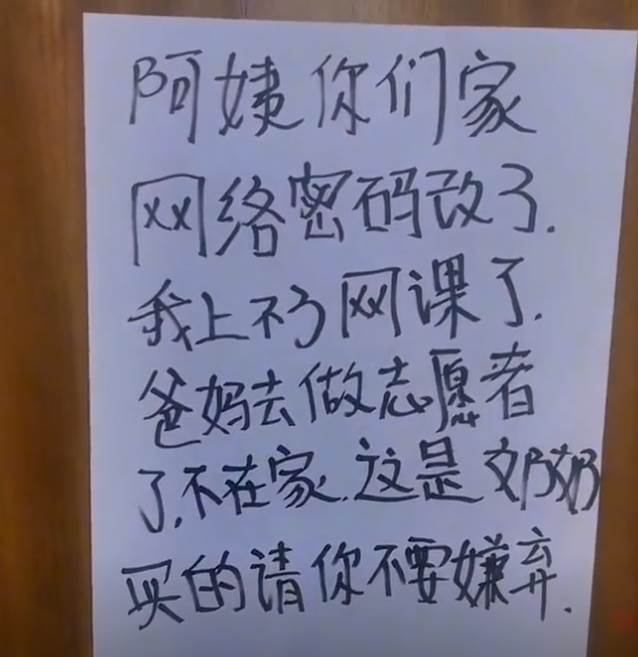 阿姨你们家
网络密码改了.
我上不了网课了.
爸妈去做志愿者
了.不在家.这是奶奶
买的请你不要嫌弃.